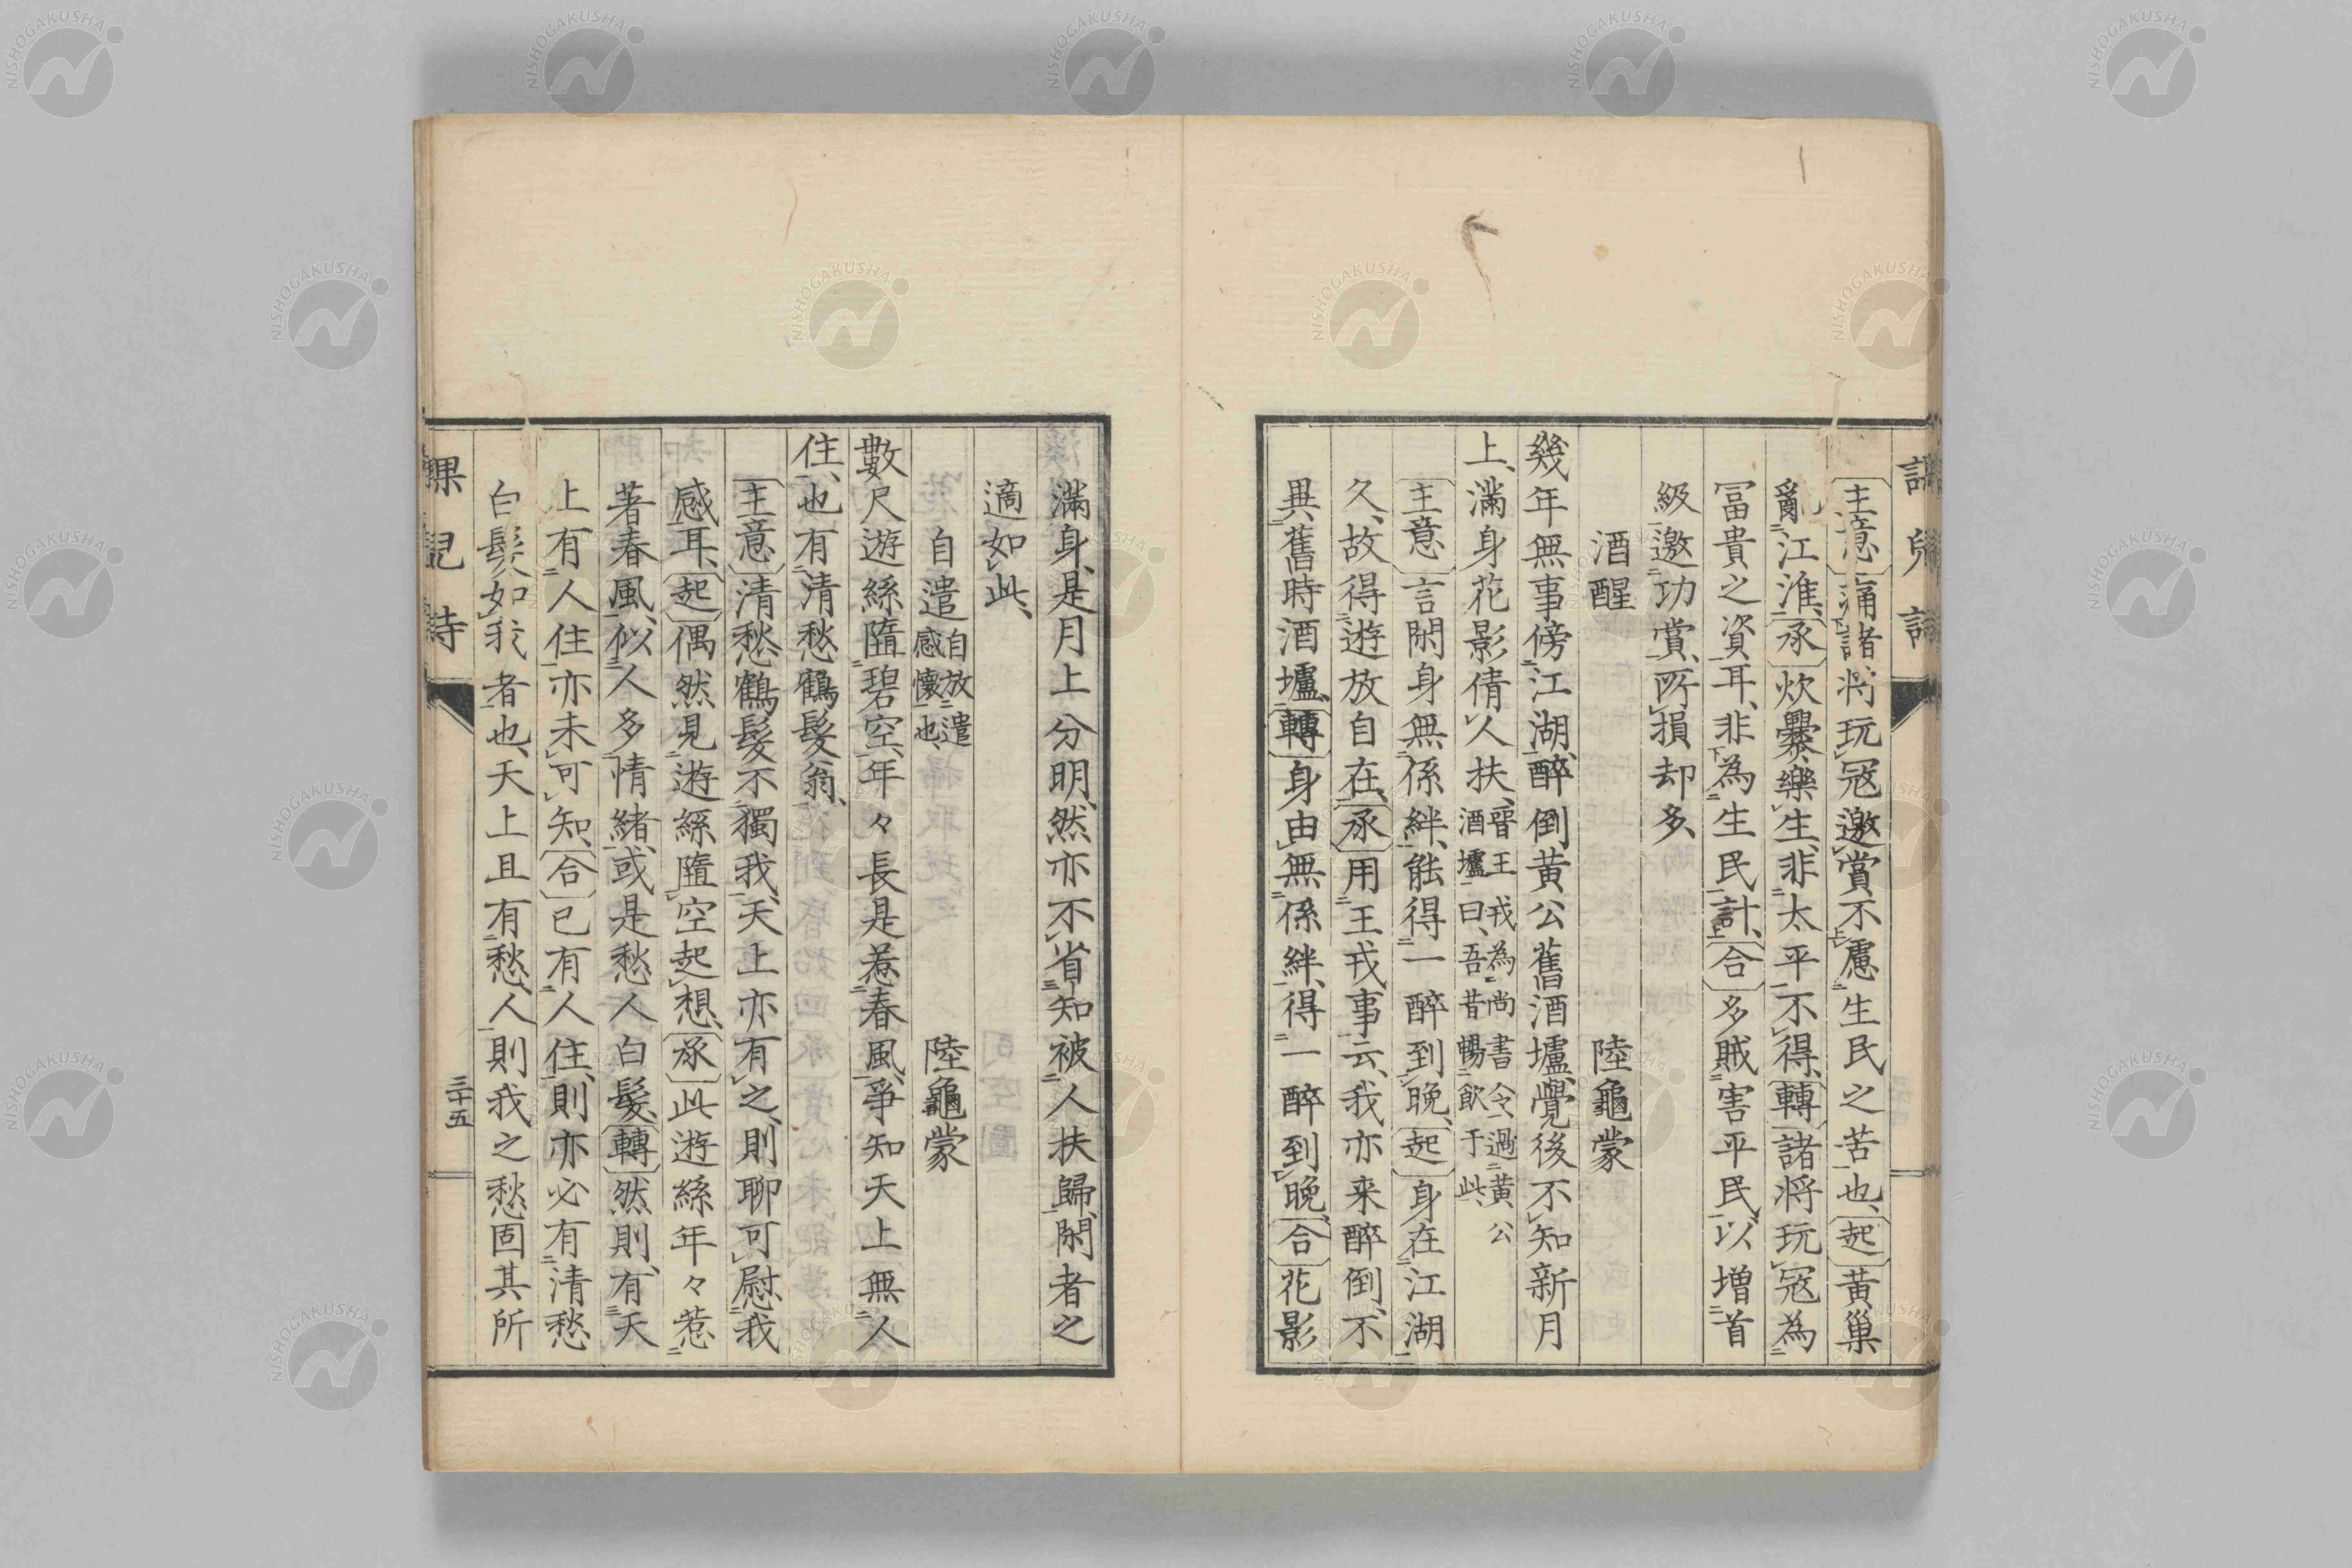 主意痛諸将玩冦邀賞不慮生民之苦也、起黄巢
亂江淮、承炊爨樂生、非太平不得、轉諸将玩冦為
冨貴之資耳、非為生民計、合多賊害平民、以増首
級邀功賞、所損却多、
酒醒　陸龜蒙
幾年無事傍江湖、醉倒黄公舊酒壚、覺後不知新月
上、満身花影倩人扶、晉王戎為尚書令、過黄公酒壚曰、吾昔暢飲于此、
主意言閑身無係絆、能得一醉到晩、起身在江湖
久、故得遊放自在、承用王戎事云、我亦来醉倒、不
異舊時酒壚、轉身由無係絆、得一醉到晩、合花影
滿身、是月上分明、然亦不省知被人扶歸、閑者之
適如此、
自遣自放遣感懷也、　陸龜蒙
數尺遊絲隨碧空、年々長是惹春風、爭知天上無人
住、也有清愁鶴髮翁、
主意清愁鶴髮不獨我、天上亦有之、則聊可慰我
感耳、起偶然見遊絲隨空起想、承此遊絲年々惹
著春風、似人多情緒、或是愁人白髮、轉然則、有天
上有人住亦未可知、合已有人住、則亦必有清愁
白髮如我者也、天上且有愁、人則我之愁固其所
課兒詩
三十五
NISHOGAKUSHA